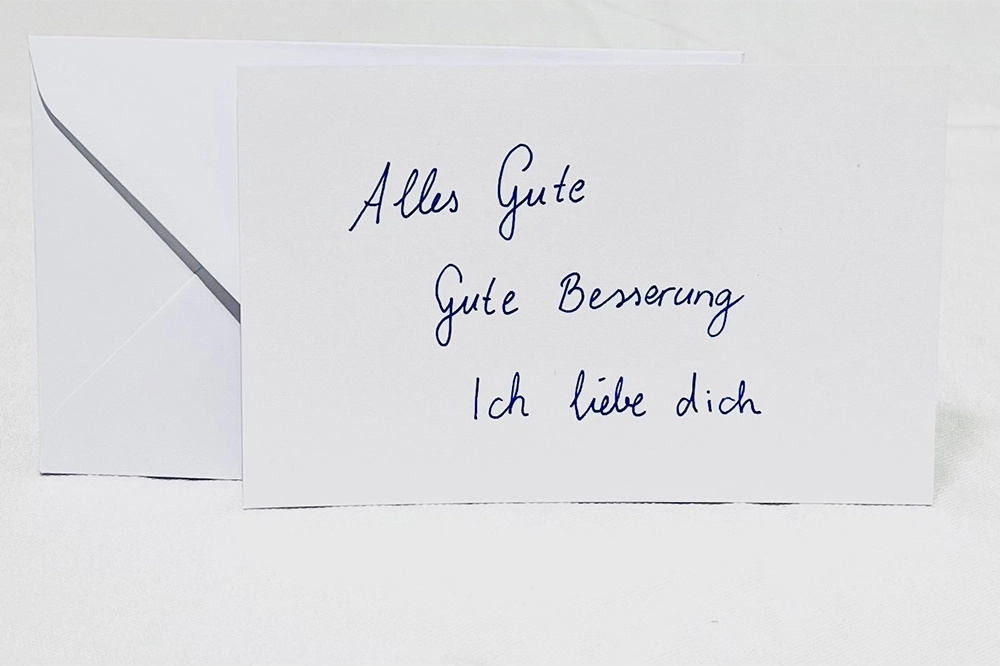 Alles Gute
Gute Besserung
Ich liebe dich